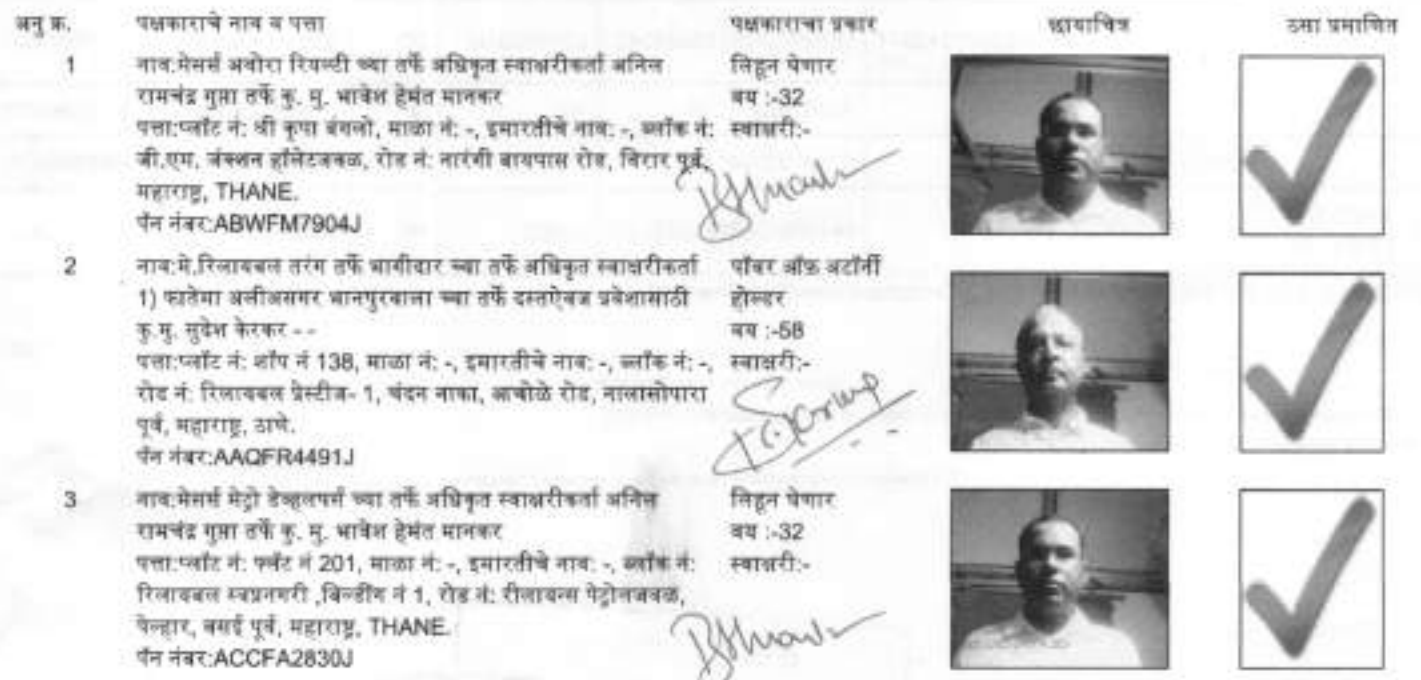 अनु क्र. पक्षकाराचे नाव व पत्ता पक्षकाराचा प्रकार छायाचित्र ठसा प्रमाणित
1 नाव:मेसर्स अथोरा रियल्टी च्या तर्फे अधिकृत स्वाक्षरीकर्ता अनिल लिहून घेणार
रामचंद्र गुप्ता तर्फे कु. मु. भावेश हेमंत मानकर वय :-32
पत्ता:प्लॉट नं: श्री कृपा बंगलो, माळा नं: -, इमारतीचे नाव: -, ब्लॉक नं: स्वाक्षरी:-
जी.एम. जंक्शन हॉलेटजवळ, रोड नं: नारंगी बायपास रोड, विरार पूर्व,
महाराष्ट्र, THANE.
पॅन नंबर:ABWFM7904J
2 नाव:मे.रिलायबल तरंग तर्फे भागीदार च्या तर्फे अधिकृत स्वाक्षरीकर्ता पॉवर ऑफ़ अटॉर्नी
1) फातेमा अलीअसगर भानपुरवाला च्या तर्फे दस्तऐवज प्रवेशासाठी होल्डर
कु.मु. सुदेश केरकर - - वय :-58
पत्ता:प्लॉट नं: शॉप नं 138, माळा नं: -, इमारतीचे नाव: -, ब्लॉक नं: -, स्वाक्षरी:-
रोड नं: रिलायबल प्रेस्टीज- 1, चंदन नाका, आचोळे रोड, नालासोपारा
पूर्व, महाराष्ट्र, ठाणे.
पॅन नंबर:AAQFR4491J
3 नाव:मेसर्स मेट्रो डेव्हलपर्स च्या तर्फे अधिकृत स्वाक्षरीकर्ता अनिल लिहून घेणार
रामचंद्र गुप्ता तर्फे कु. मु. भावेश हेमंत मानकर वय :-32
पत्ता:प्लॉट नं: फ्लॅट नं 201, माळा नं: -, इमारतीचे नाव: -, ब्लॉक नं: स्वाक्षरी:-
रिलायबल स्वप्ननगरी ,बिल्डींग नं 1, रोड नं: रीलायन्स पेट्रोलजवळ,
पेल्हार, वसई पूर्व, महाराष्ट्र, THANE.
पॅन नंबर:ACCFA2830J